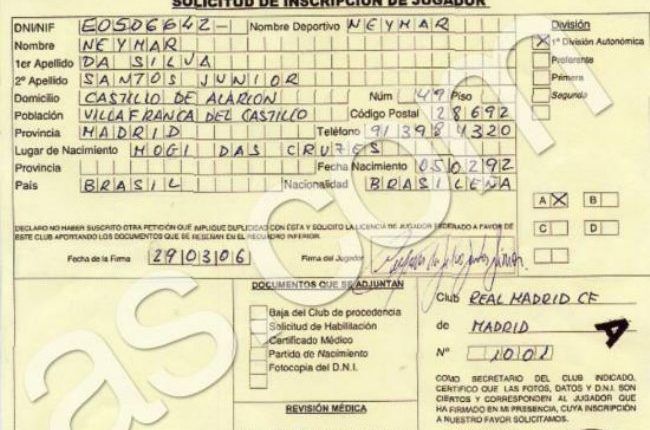 SOLICITUD DE INSCRIPCION DE JUGADOR
DNI/NIF E0506642- Nombre Deportivo NEYMAR
Nombre NEYMAR
1er Apellido DA SILVA
2º Apellido SANTOS JUNIOR
Domicilio CASTILLO DE ALARION Núm 49 Piso
Población VILLAFRANCA DEL CASTILLO Código Postal 28692
Provincia MADRID Teléfono 913984320
Lugar de Nacimiento MOGI DAS CRUZES
Provincia Fecha Nacimiento 050292
País BRASIL Nacionalidad BRASILEÑA
División
X 1ª División Autonómica
Preferente
Primera
Segunda
A X B
C D
DECLARO NO HABER SUSCRITO OTRA PETICIÓN QUE IMPLIQUE DUPLICIDAD CON ESTA Y SOLICITO LA LICENCIA DE JUGADOR FEDERADO A FAVOR DE
ESTE CLUB APORTANDO LOS DOCUMENTOS QUE SE RESEÑAN EN EL RECUADRO INFERIOR.
Fecha de la Firma 290306 Firma del Jugador
DOCUMENTOS QUE SE ADJUNTAN
Baja del Club de procedencia
Solicitud de Habilitación
Certificado Médico
Partida de Nacimiento
Fotocopia del D.N.I.
REVISIÓN MÉDICA
Club REAL MADRID CF
de MADRID
A
Nº 1001
COMO SECRETARIO DEL CLUB INDICADO,
CERTIFICO QUE LAS FOTOS, DATOS Y D.N.I. SON
CIERTOS Y CORRESPONDEN AL JUGADOR QUE
HA FIRMADO EN MI PRESENCIA, CUYA INSCRIPCIÓN
A NUESTRO FAVOR SOLICITAMOS.
as.com